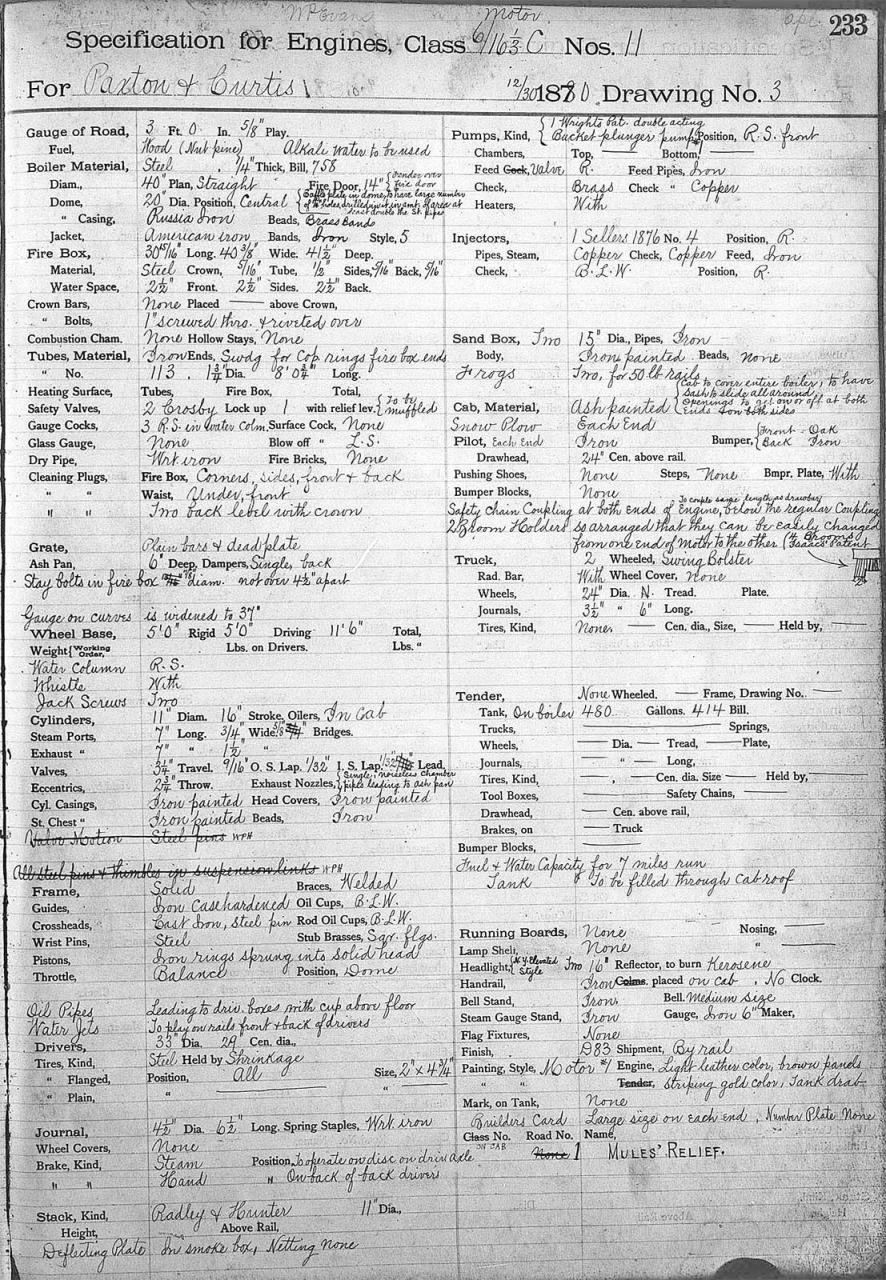 Wm Evans Motor
233
Specification for Engines, Class 6/16 1/3 C Nos. 11
For Paxton & Curtis 12/30 1880 Drawing No. 3
Gauge of Road, 3 Ft. 0 In. 5/8" Play.
Fuel, Wood (Nut pine) Alkali water to be used
Boiler Material, Steel 1/4" Thick, Bill, 758
Diam., 40" Plan, Straight Fire Door, 14" {Fender over fire door
Dome, 20" Dia. Position, Central
" Casing, Russia Iron Beads, Brass Bands
Jacket, American iron Bands, Iron Style, 5
Fire Box, 30 15/16" Long. 40 3/8" Wide. 41 1/2" Deep.
Material, Steel Crown, 5/16" Tube, 1/2" Sides, 5/16" Back, 5/16"
Water Space, 2 1/2" Front. 2 1/2" Sides. 2 1/2" Back.
Crown Bars, None Placed — above Crown,
" Bolts, 1" screwed thro. & riveted over
Combustion Cham. None Hollow Stays, None
Tubes, Material, Iron Ends, Swdg for Cop rings fire box ends
" No. 113 . 1 3/4" Dia. 8' 0 3/4" Long.
Heating Surface, Tubes, Fire Box, Total,
Safety Valves, 2 Crosby Lock up 1 with relief lev. {To be muffled
Gauge Cocks, 3 R.S. in water Colm, Surface Cock, None
Glass Gauge, None Blow off " L.S.
Dry Pipe, Wrt iron Fire Bricks, None
Cleaning Plugs, Fire Box, Corners, sides, front & back
" " Waist, Under, front
" " Two back level with crown
Grate, Plain bars & dead plate
Ash Pan, 6" Deep, Dampers, Single, back
Stay bolts in fire box 7/8" diam. not over 4 1/2" apart
Gauge on curves is widened to 37"
Wheel Base, 5'0" Rigid 5'0" Driving 11'6" Total,
Weight {Working Order, Lbs. on Drivers. Lbs. "
Water Column R.S.
Whistle With
Jack Screws Two
Cylinders, 11" Diam. 16" Stroke, Oilers, In Cab
Steam Ports, 7" Long. 3/4" Wide. 5/8" Bridges.
Exhaust " 7" " 1 1/2" "
Valves, 3 1/4" Travel. 9/16" O. S. Lap. 1/32" I. S. Lap. 1/32" Lead,
Eccentrics, 2 3/4" Throw. Exhaust Nozzles, {Single, noiseless chamber pipe leading to ash pan
Cyl. Casings, Iron painted Head Covers, Iron painted
St. Chest " Iron painted Beads, Iron
Valve Motion Steel pins WPH
All steel pins & thimbles in suspension links WPH
Frame, Solid Braces, Welded
Guides, Iron Casehardened Oil Cups, B.L.W.
Crossheads, Cast Iron, Steel pin Rod Oil Cups, B.L.W.
Wrist Pins, Steel Stub Brasses, Sqr. flgs.
Pistons, Iron rings sprung into solid head
Throttle, Balance Position, Dome
Oil Pipes Leading to driv. boxes with cup above floor
Water Jets To play on rails front & back of drivers
Drivers, 33" Dia. 29" Cen. dia.,
Tires, Kind, Steel Held by Shrinkage
" Flanged, Position, All Size, 2" x 4 3/4"
" Plain, " —
Journal, 4 1/2" Dia. 6 1/2" Long. Spring Staples, Wrt. iron
Wheel Covers, None
Brake, Kind, Steam Position, To operate on disc on driv axle
" " Hand " On back of back driver
Stack, Kind, Radley & Hunter 11" Dia.,
Height, Above Rail,
Deflecting Plate In smoke box, Netting None
Pumps, Kind, {1 Wrights Pat. double acting Bucket plunger pump Position, R.S. front
Chambers, Top, — Bottom, —
Feed Cock, Valve R. Feed Pipes, Iron
Check, Brass Check " Copper
Heaters, With
Injectors, 1 Sellers 1876 No. 4 Position, R.
Pipes, Steam, Copper Check, Copper Feed, Iron
Check, B.L.W. Position, R.
Sand Box, Two 15" Dia., Pipes, Iron
Body, Iron painted Beads, None
Frogs Two, for 50 lb rails
Cab, Material, Ash painted {Cab to cover entire boiler, to have Sash to slide all around Openings to get on or off at both Ends & on both sides
Snow Plow Each End
Pilot, Each End Iron Bumper, {Front - Oak Back Iron
Drawhead, 24" Cen. above rail.
Pushing Shoes, None Steps, None Bmpr. Plate, With
Bumper Blocks, None
To couple same length as drawbar
Safety chain Coupling at both ends of Engine, below the regular Coupling
2 Broom Holders so arranged that they can be easily changed
from one end of Motor to the other (4 Brooms Isaacs' Patent
Truck, 2 Wheeled, Swing Bolster
Rad. Bar, With Wheel Cover, None
Wheels, 24" Dia. N. Tread. Plate.
Journals, 3 1/2" " 6" Long.
Tires, Kind, None. — Cen. dia., Size, — Held by, —
Tender, None Wheeled. — Frame, Drawing No. —
Tank, On boiler 480 Gallons. 414 Bill.
Trucks, — Springs,
Wheels, — Dia. — Tread, — Plate,
Journals, — " — Long,
Tires, Kind, — , — Cen. dia. Size — Held by, —
Tool Boxes, — Safety Chains, —
Drawhead, — Cen. above rail,
Brakes, on — Truck
Bumper Blocks, —
Fuel & Water Capacity for 7 miles run
Tank To be filled through cab roof
Running Boards, None Nosing, —
Lamp Shelf, None " —
Headlight, {N.Y. Elevated Style Two 16" Reflector, to burn Kerosene
Handrail, Iron Colms. placed on cab . No Clock.
Bell Stand, Iron. Bell. Medium size
Steam Gauge Stand, Iron Gauge, Iron 6" Maker,
Flag Fixtures, None
Finish, D83 Shipment, By rail
Painting, Style, Motor #1 Engine, Light leather color, brown panels
" " Tender, Striping gold color, Tank drab
Mark, on Tank, None
Builders Card Large size on each end, Number Plate None
Class No. Road No. Name,
ON CAB None 1 MULES' RELIEF.